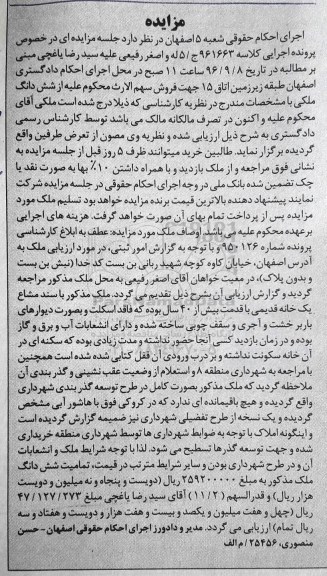 مزایده
اجرای احکام حقوقی شعبه ۵ اصفهان در نظر دارد جلسه مزایده ای در خصوص
پرونده اجرایی کلاسه ۹۶۱۶۶۳ ج/۵ له و اصغر رفیعی علیه سید رضا یاغچی مبنی
بر مطالبه در تاریخ ۹۶/۹/۸ ساعت ۱۱ صبح در محل اجرای احکام دادگستری
اصفهان طبقه زیرزمین اتاق ۱۵ جهت فروش سهم الارث محکوم علیه از شش دانگ
ملکی با مشخصات مندرج در نظریه کارشناسی که ذیلا درج شده است ملکی آقای
محکوم علیه و اکنون در تصرف مالکانه مالک می باشد توسط کارشناس رسمی
دادگستری به شرح ذیل ارزیابی شده و نظریه وی مصون از تعرض طرفین واقع
گردیده برگزار نماید. طالبین خرید میتوانند ظرف ۵ روز قبل از جلسه مزایده به
نشانی فوق مراجعه و از ملک بازدید و با همراه داشتن ۱۰٪ بها به صورت نقد یا
چک تضمین شده بانک ملی در وجه اجرای احکام حقوقی در جلسه مزایده شرکت
نمایند پیشنهاد دهنده بالاترین قیمت برنده مزایده خواهد بود تسلیم ملک مورد
مزایده پس از پرداخت تمام بهای آن صورت خواهد گرفت. هزینه های اجرایی
برعهده محکوم علیه می باشد اوصاف ملک مورد مزایده: عطف به ابلاغ کارشناسی
پرونده شماره ۹۵۰۱۲۶ و با توجه به گزارش امور ثبتی، در مورد ارزیابی ملک به
آدرس اصفهان، خیابان کاوه کوچه شهید ربانی بن بست کد خدا (نبش بن بست
و بدون پلاک)، در معیت خواهان آقای اصغر رفیعی به محل ملک مذکور مراجعه
گردید و گزارش ارزیابی آن بشرح ذیل تقدیم می گردد. ملک مذکور با سند مشاع
یک خانه قدیمی با قدمت بیش از ۴۰ سال بوده که فاقد اسکلت و بصورت دیوارهای
باربر خشت و آجری و سقف چوبی ساخته شده و دارای انشعابات آب و برق و گاز
بوده و در زمان بازدید کسی آنجا حضور نداشته و مدت زیادی بوده که سکنه ای در
آن خانه سکونت نداشته و بر درب ورودی آن قفل کتابی شده شده است همچنین
با مراجعه به شهرداری منطقه ۸ و استعلام از وضعیت عقب نشینی و گذر بندی آن
ملاحظه گردید که ملک مذکور بصورت کامل در طرح توسعه گذر بندی شهرداری
واقع گردیده و هیچ باقیمانده ای ندارد که در کروکی فوق با هاشور آبی مشخص
گردیده و یک نسخه از طرح تفضیلی شهرداری نیز ضمیمه گزارش گردیده است
و اینگونه املاک با توجه به ضوابط شهرداری ها توسط شهرداری منطقه خریداری
شده و جهت توسعه گذرها تسطیح می شود. لذا با توجه شرایط ملک و انشعابات
آن و در طرح شهرداری بودن و سایر شرایط مترتب در قیمت، تمامیت شش دانگ
ملک مذکور به مبلغ ۲۵۹۲۰۰۰۰۰ ریال (دویست و پنجاه و نه میلیون و دویست
هزار ریال) و قدرالسهم (۲/۱۱) آقای سید رضا یاغچی مبلغ ۴۷/۱۲۷/۲۷۳
ریال (چهل و هفت میلیون و یکصد و بیست و هفت هزار و دویست و هفتاد و سه
ریال تمام) ارزیابی می گردد. مدیر و دادورز اجرای احکام حقوقی اصفهان - حسن
منصوری، ۲۵۴۵۶ / م الف